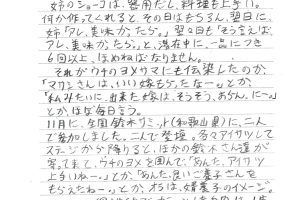 姉のショーコは、器用だし、料理も上手い。
何か作ってくれると、その日はもちろん、翌日に、
姉「アレ、美味かったら。」翌々日も「そう言えば
アレ、美味かったら。」と、滞在中に、一品につき
6回以上、ほめねばなりません。
それがウチのヨメサマにも伝染したのか、
「マカリさんは、いい嫁もらったなー。」とか、
「私みたいに、出来た嫁は、そうそう、あらん、にー。」
とか、ほぼ毎日言う。
11月に、全国鈴木サミット(和歌山県)に、二人
で参加しました。二人で登壇。多々アイサツして
ステージから降りると、ほかの鈴木さん達が
寄って来て、ウチのヨメを囲んで、「あんた、アイサツ
上手いねー。」とか、「あんた、良いご養子さんを
もらえたねー。」とか、オラは、婿養子のイメージ。